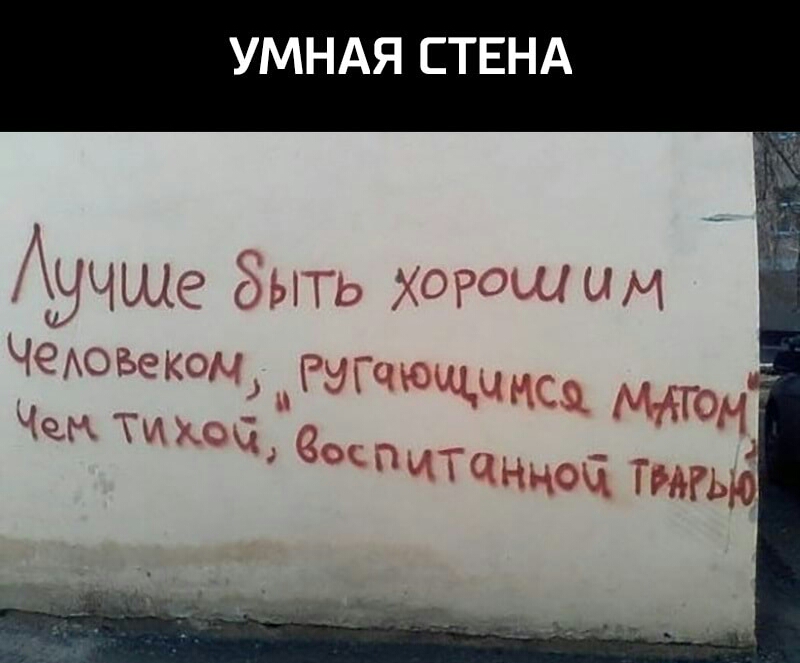 УМНАЯ СТЕНА
Лучше быть хорошим
человеком, „ругающимся матом",
чем тихой, воспитанной тварью